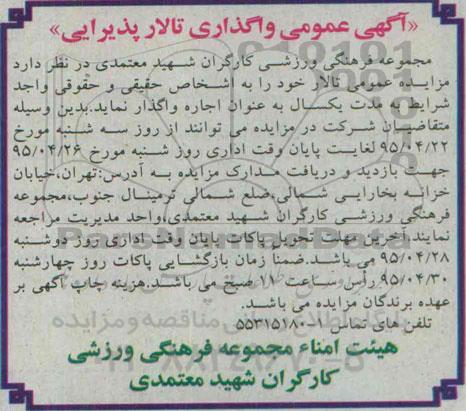 «آگهی عمومی واگذاری تالار پذیرایی»
مجموعه فرهنگی ورزشی کارگران شهید معتمدی در نظر دارد
مزایده عمومی تالار خود را به اشخاص حقیقی و حقوقی واجد
شرایط به مدت یکسال به عنوان اجاره واگذار نماید.بدین وسیله
متقاضیان شرکت در مزایده می توانند از روز سه شنبه مورخ
۹۵/۰۴/۲۲ لغایت پایان وقت اداری روز شنبه مورخ ۹۵/۰۴/۲۶
جهت بازدید و دریافت مدارک مزایده به آدرس:تهران،خیابان
خزانه بخارایی شمالی،ضلع شمالی ترمینال جنوب،مجموعه
فرهنگی ورزشی کارگران شهید معتمدی،واحد مدیریت مراجعه
نمایند.آخرین مهلت تحویل پاکات پایان وقت اداری روز دوشنبه
۹۵/۰۴/۲۸ می باشد.ضمنا زمان بازگشایی پاکات روز چهارشنبه
۹۵/۰۴/۳۰ رأس ساعت ۱۱ صبح می باشد.هزینه چاپ آگهی بر
عهده برندگان مزایده می باشد.
تلفن های تماس ۱-۵۵۳۱۵۱۸۰
هیئت امناء مجموعه فرهنگی ورزشی
کارگران شهید معتمدی